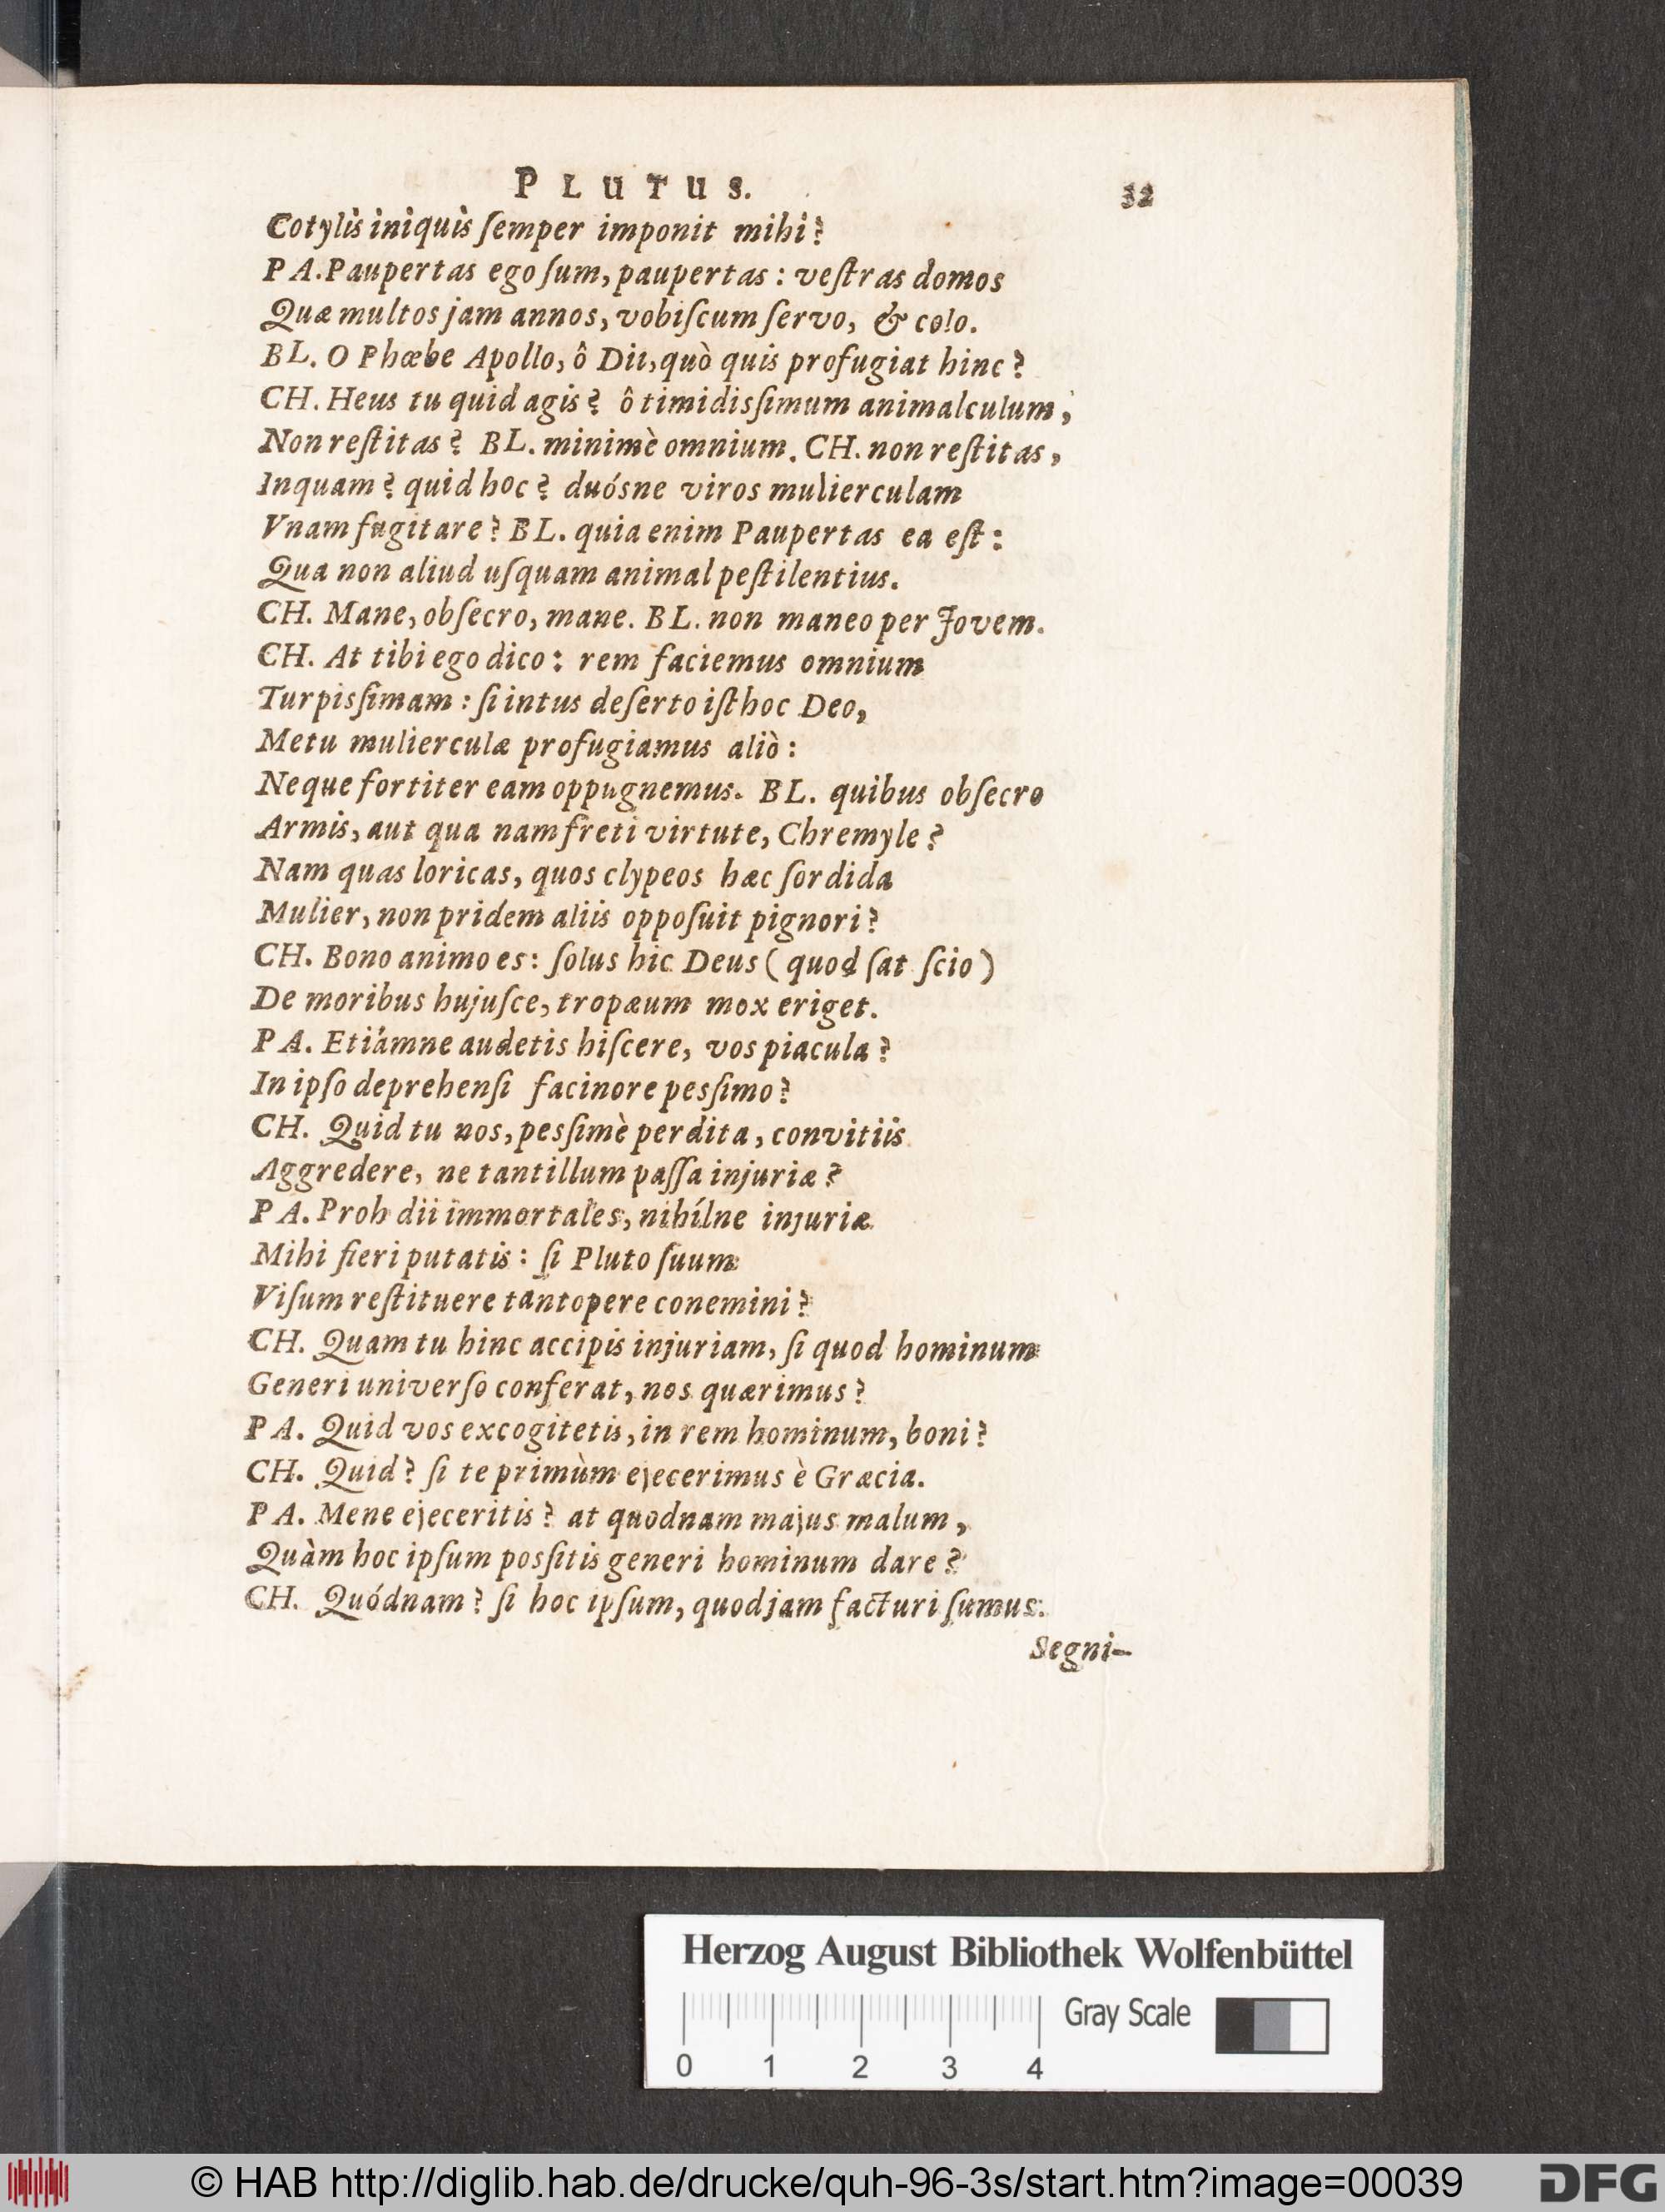 PLUTUS. 32
Cotylis iniquis ſemper imponit mihi?
PA. Paupertas ego ſum, paupertas: veſtras domos
Quæ multos jam annos, vobiſcum ſervo, & colo.
BL. O Phœbe Apollo, ô Dii, quò quis profugiat hinc?
CH. Heus tu quid agis? ô timidisſimum animalculum,
Non reſtitas? BL. minimè omnium. CH. non reſtitas,
Inquam? quid hoc? duósne viros mulierculam
Vnam fugitare? BL. quia enim Paupertas ea eſt:
Qua non aliud uſquam animal peſtilentius.
CH. Mane, obſecro, mane. BL. non maneo per Jovem.
CH. At tibi ego dico: rem faciemus omnium
Turpisſimam: ſi intus deſerto iſthoc Deo,
Metu mulierculæ profugiamus aliò:
Neque fortiter eam oppugnemus. BL. quibus obſecro
Armis, aut qua nam freti virtute, Chremyle?
Nam quas loricas, quos clypeos hæc ſordida
Mulier, non pridem aliis oppoſuit pignori?
CH. Bono animo es: ſolus hic Deus (quod ſat ſcio)
De moribus hujuſce, tropæum mox eriget.
PA. Etiámne audetis hiſcere, vos piacula?
In ipſo deprehenſi facinore pesſimo?
CH. Quid tu nos, pesſimè perdita, convitiis
Aggredere, ne tantillum paſſa injuriæ?
PA. Proh dii immortales, nihílne injuriæ
Mihi fieri putatis: ſi Pluto ſuum
Viſum reſtituere tantopere conemini?
CH. Quam tu hinc accipis injuriam, ſi quod hominum
Generi univerſo conferat, nos quærimus?
PA. Quid vos excogitetis, in rem hominum, boni?
CH. Quid? ſi te primùm ejecerimus è Græcia.
PA. Mene ejeceritis? at quodnam majus malum,
Quàm hoc ipſum posſitis generi hominum dare?
CH. Quódnam? ſi hoc ipſum, quod jam facturi ſumus:
Segni-
Herzog August Bibliothek Wolfenbüttel
Gray Scale
0 1 2 3 4
© HAB http://diglib.hab.de/drucke/quh-96-3s/start.htm?image=00039
DFG